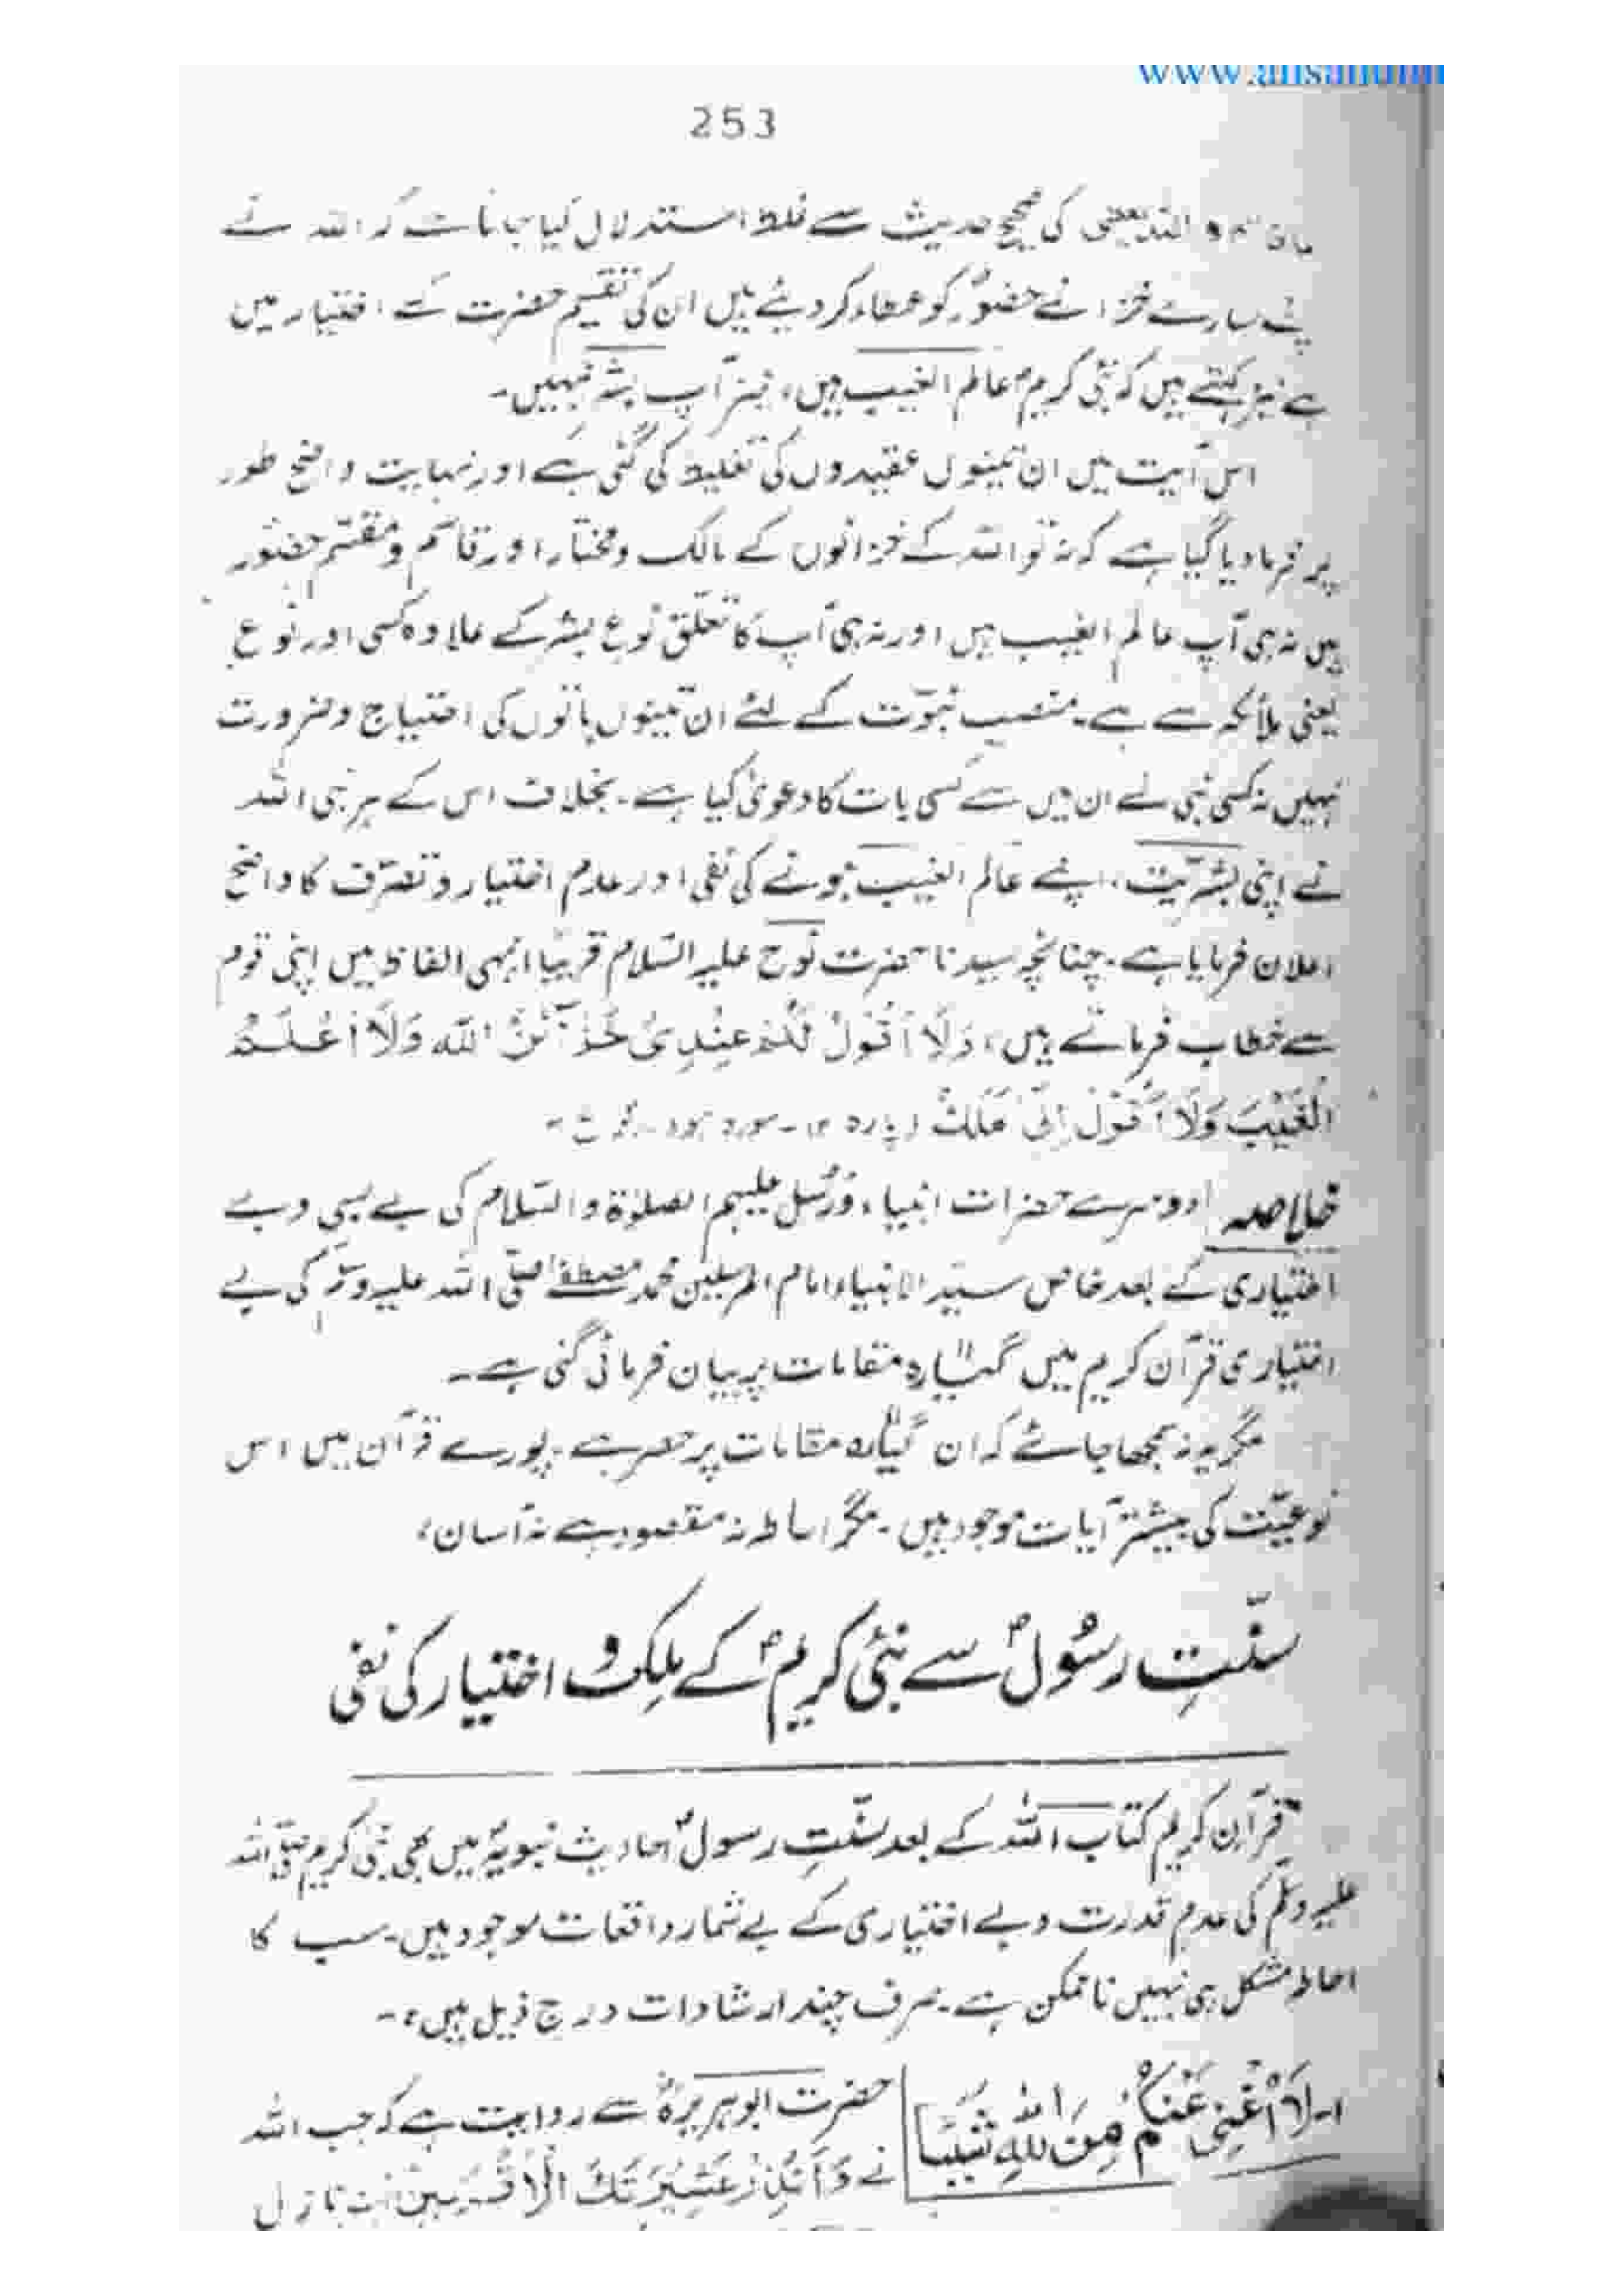 253
کی صحیح حدیث سے غلط استدلال کیا جاتا ہے کہ اللہ نے
سارے خزانے حضورؐ کو عطاء کر دیئے ہیں ان کی تقسیم حضرت کے اختیار میں
ہے نیز کہتے ہیں کہ نبی کریمؐ عالم الغیب ہیں، نیز آپ بشر نہیں۔
اس آیت میں ان تینوں عقیدوں کی تغلیط کی گئی ہے اور نہایت واضح طور
پر فرما دیا گیا ہے کہ نہ تو اللہ کے خزانوں کے مالک و مختار اور قاسم و مقسّم حضور
ہیں نہ ہی آپ عالم الغیب ہیں اور نہ ہی آپ کا تعلّق نوعِ بشر کے علاوہ کسی اور نوع
یعنی ملائکہ سے ہے۔ منصبِ نبوّت کے لئے ان تینوں باتوں کی احتیاج و ضرورت
نہیں نہ کسی نبی نے ان میں سے کسی بات کا دعویٰ کیا ہے۔ بخلاف اس کے ہر نبی اللہ
نے اپنی بشریّت، اپنے عالم الغیب ہونے کی نفی اور عدم اختیار و تصرّف کا واضح
اعلان فرمایا ہے۔ چنانچہ سیدنا حضرت نوح علیہ السّلام قریباً انہی الفاظ میں اپنی قوم
سے خطاب فرماتے ہیں، وَلَا أَقُولُ لَكُمْ عِنْدِي خَزَآئِنُ اللّٰهِ وَلَا أَعْلَمُ
الْغَيْبَ وَلَا أَقُولُ إِنِّي مَلَكٌ (پارہ ۱۲۔ سورہ ہود۔
خلاصہ دوسرے حضرات انبیاء و رُسل علیہم الصلوٰۃ والسّلام کی بے بسی و بے
اختیاری کے بعد خاص سیّد الانبیاء امام المرسلین محمد مصطفےٰ صلّی اللہ علیہ وسلّم کی بے
اختیاری قرآن کریم میں گیارہ مقامات پر بیان فرمائی گئی ہے۔
مگر یہ نہ سمجھا جائے کہ ان گیارہ مقامات پر حصر ہے۔ پورے قرآن میں اس
نوعیّت کی بیشتر آیات موجود ہیں۔ مگر احاطہ نہ مقصود ہے نہ آسان،
سنّتِ رسُولؐ سے نبیٔ کریمؐ کے مِلک و اختیار کی نفی
قرآن کریم کتاب اللہ کے بعد سنّتِ رسولؐ احادیثِ نبویہؐ میں بھی نبی کریم صلّی اللہ
علیہ وسلّم کی عدمِ قدرت و بے اختیاری کے بے شمار واقعات موجود ہیں۔ سب کا
احاطہ مشکل ہی نہیں ناممکن ہے۔ صرف چند ارشادات درج ذیل ہیں:۔
۱۔ لَا أُغْنِي عَنْكُمْ مِنَ اللّٰهِ شَيْئًا حضرت ابوہریرہؓ سے روایت ہے کہ جب اللہ
نے وَأَنْذِرْ عَشِيْرَتَكَ الْأَقْرَبِيْنَ نازل